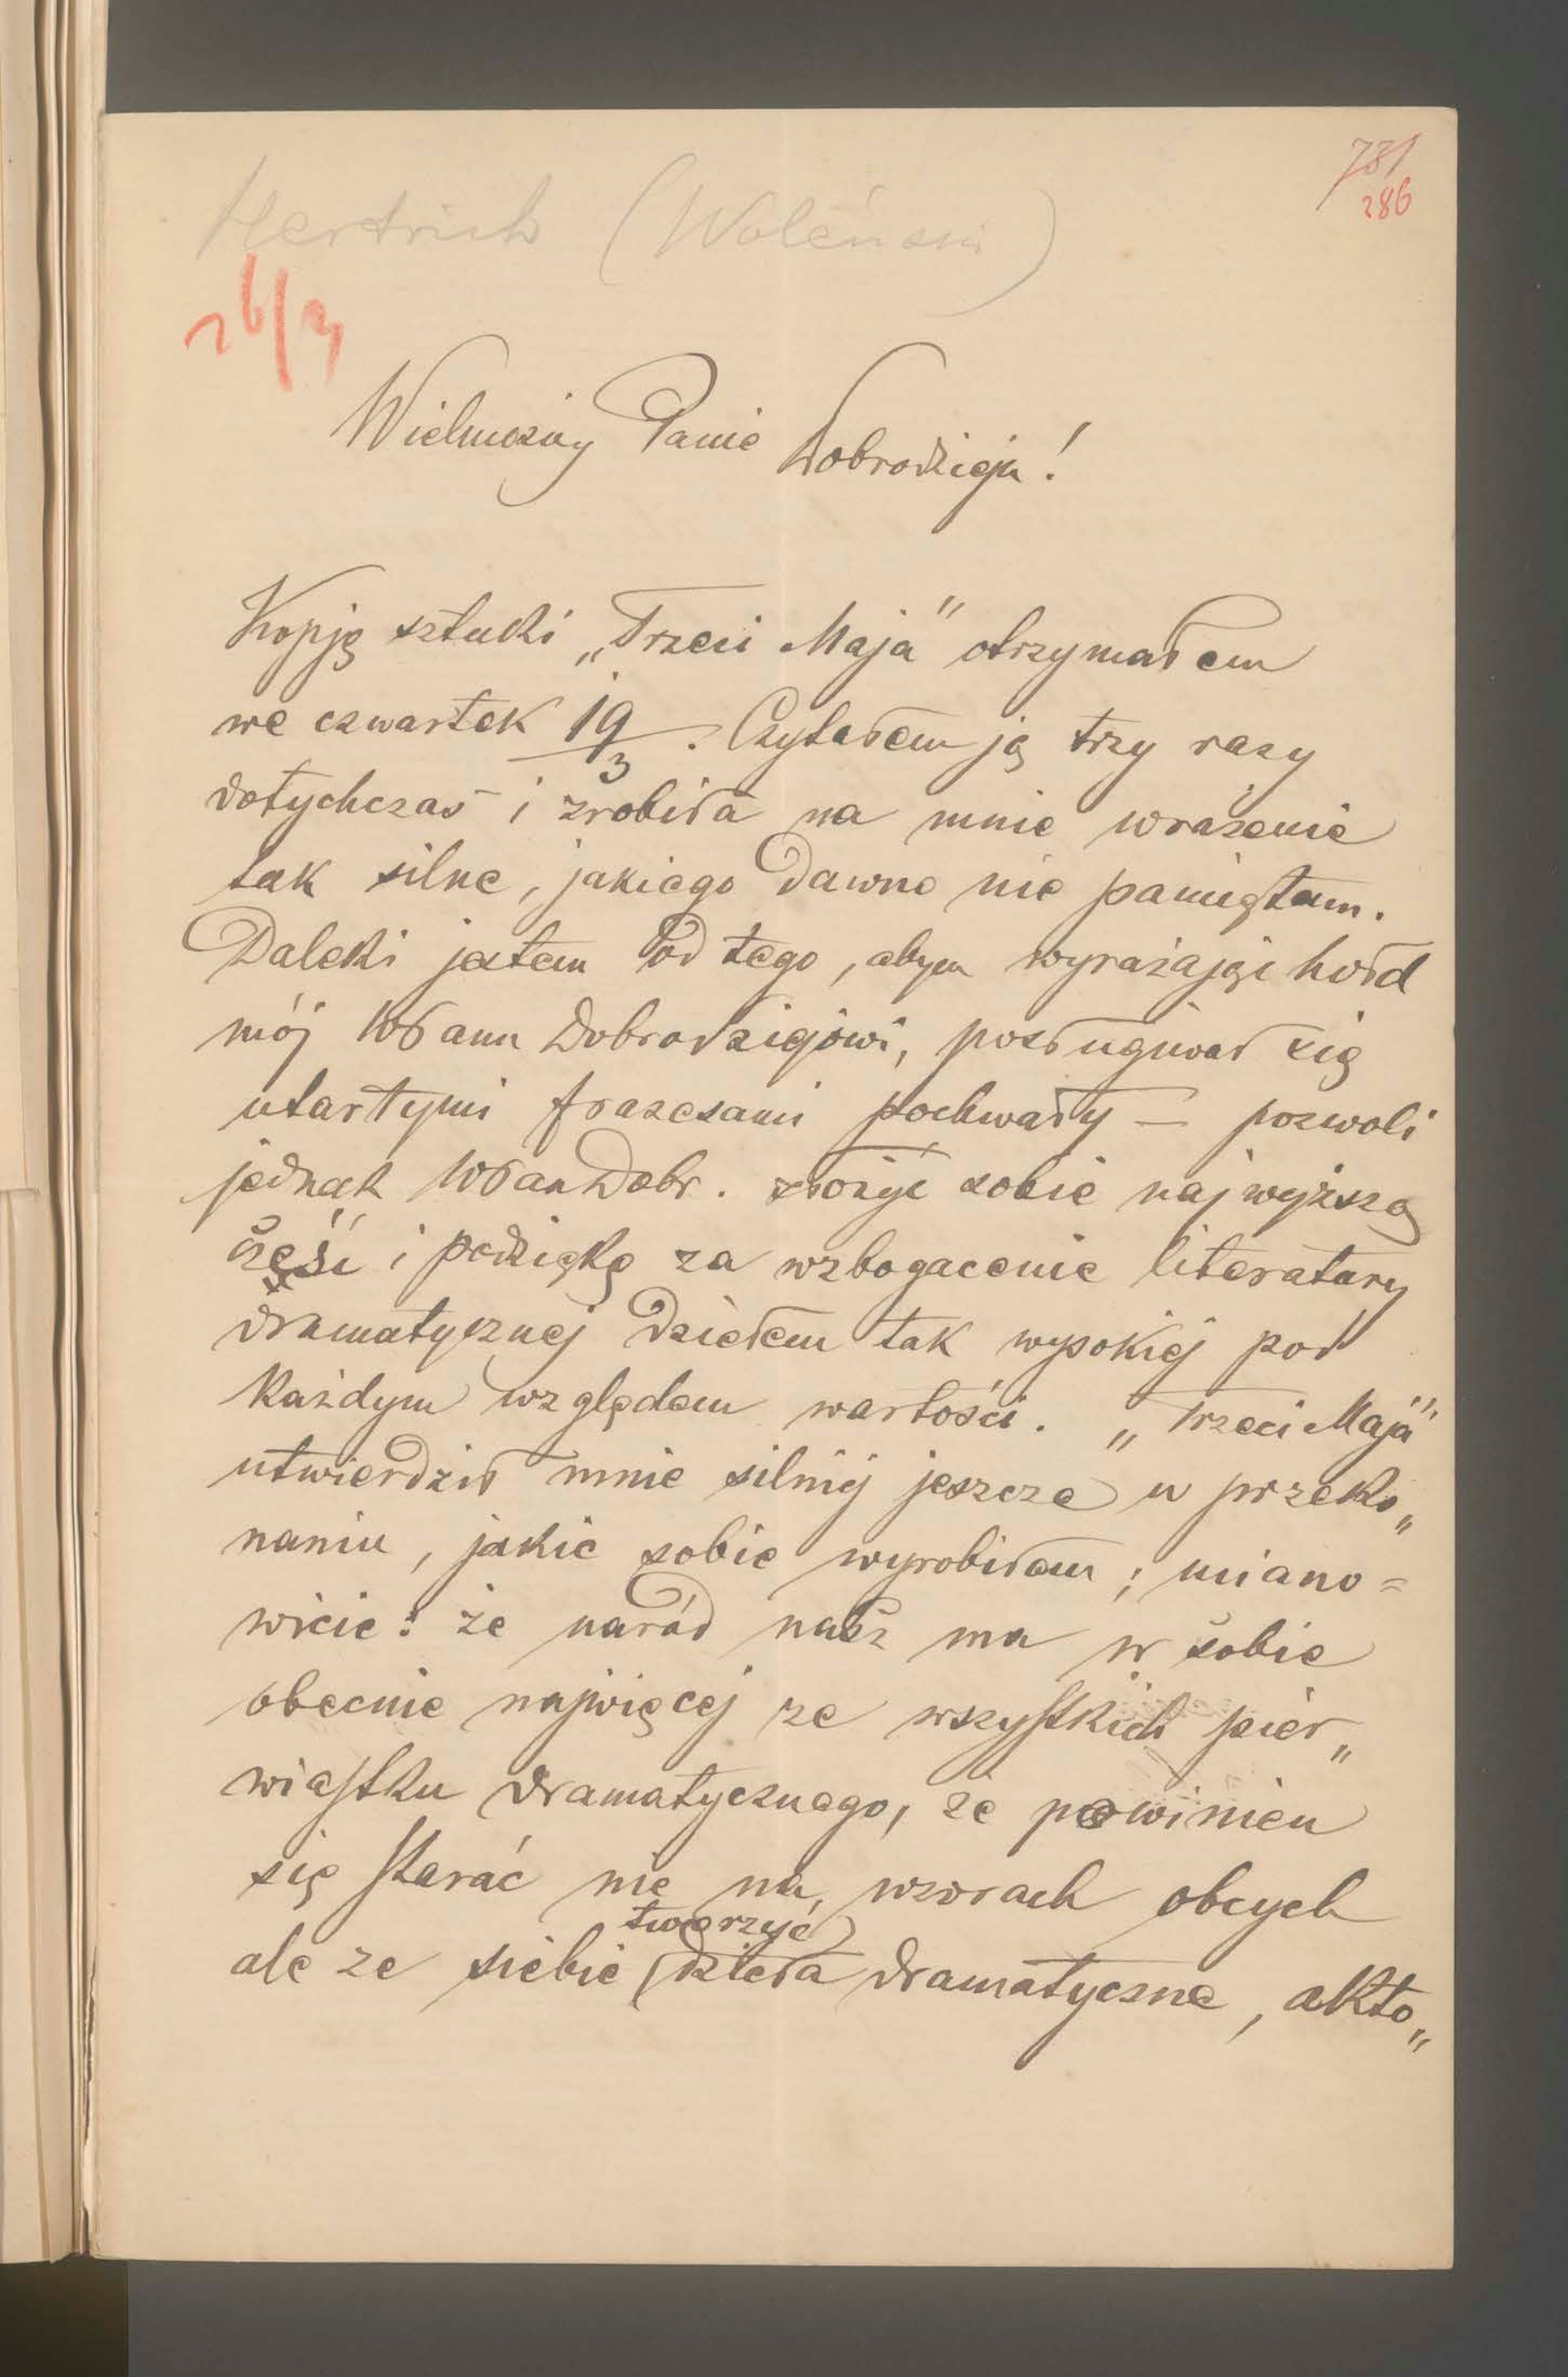 731
286
Hertrich (Woleński)
26/3
Wielmożny Panie Dobrodzieju!
Kopję sztuki „Trzeci Maja" otrzymałem
we czwartek 19/3. Czytałem ją trzy razy
dotychczas i zrobiła na mnie wrażenie
tak silne, jakiego dawno nie pamiętam.
Daleki jestem od tego, abym wyrażając hołd
mój WPanu Dobrodziejowi, posługiwał się
utartymi frazesami pochwały — pozwoli
jednak WPan Dobr. złożyć sobie najwyższą
cześć i podziękę za wzbogacenie literatury
dramatycznej dziełem tak wysokiej pod
każdym względem wartości. „Trzeci Maja"
utwierdził mnie silniej jeszcze w przeko„
naniu, jakie sobie wyrobiłem; miano=
wicie: że naród nasz ma w sobie
obecnie najwięcej ze wszystkich pier„
wiastku dramatycznego, że powinien
się starać nie na wzorach obcych
ale ze siebie tworzyć dzieła dramatyczne, akto„